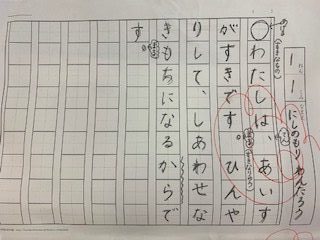 1ー1 にしのもり わんたろう
○わたしは、あいす
がすきです ひんや
りして、しあわせな
きもちになるからで
す